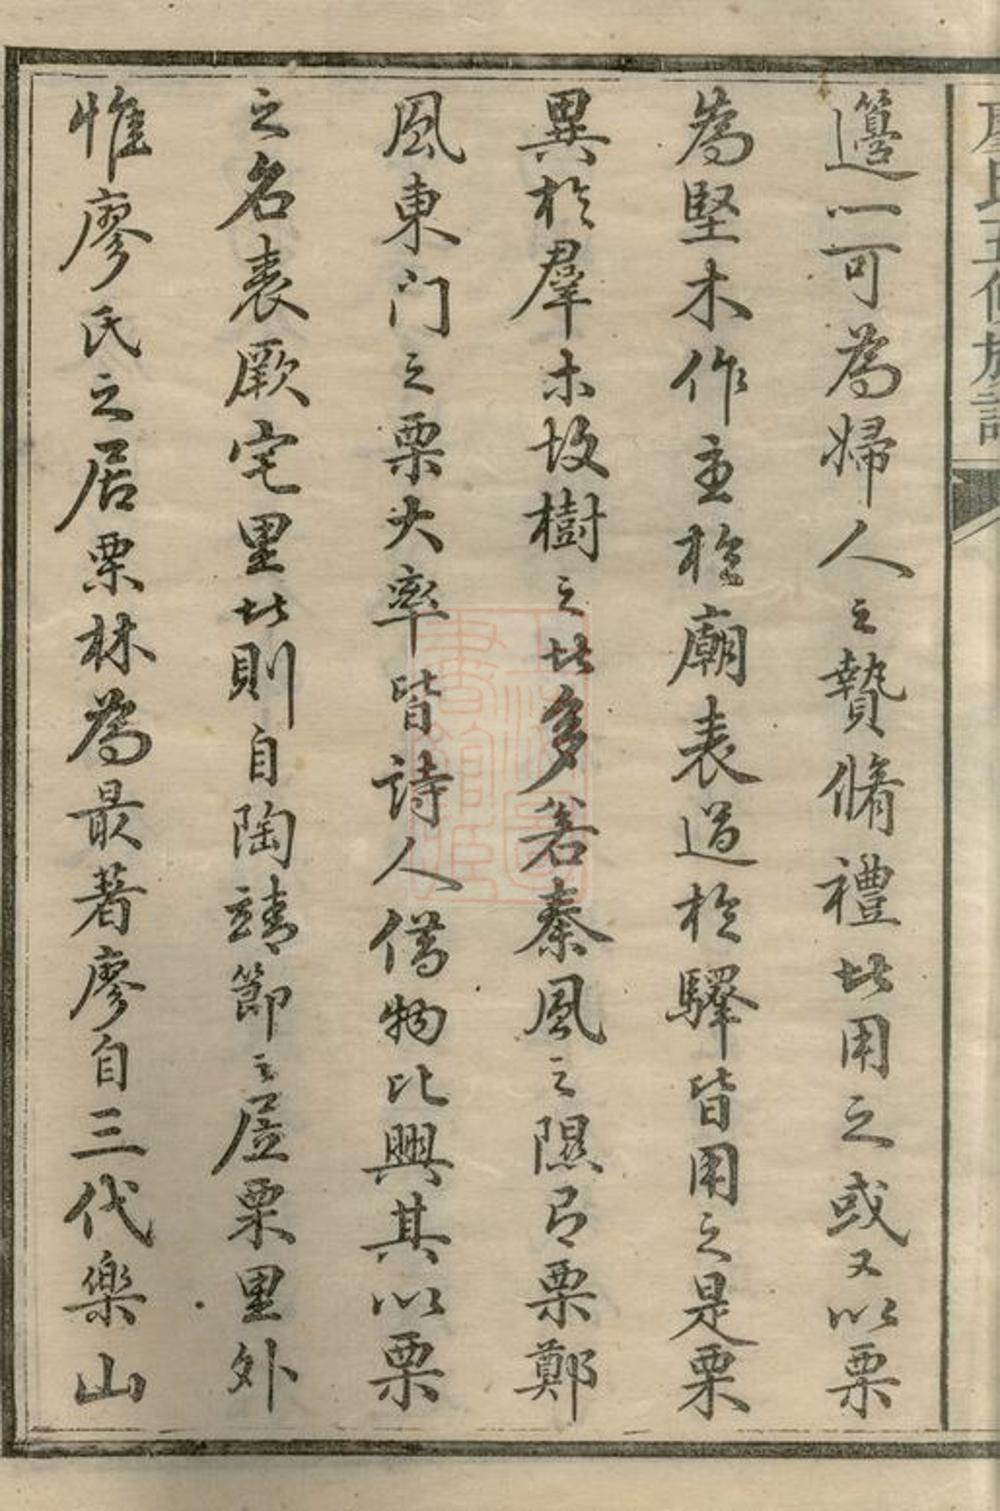 廖氏五修族譜
籩以可為婦人之贄脩禮此用之或又以栗
為堅木作主於廟表道於驛皆用之是栗
異於羣木故樹之此多若秦風之隰有栗鄭
風東门之栗大率皆詩人借物比興其以栗
之名表厥宅里此則自陶靖節之居栗里外
惟廖氏之居栗林為最著廖自三代樂山
上海圖書館藏